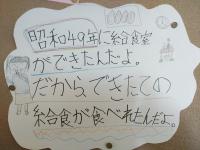 昭和49年に給食室
ができたんだよ。
だから、できたての
給食が食べれたんだよ。